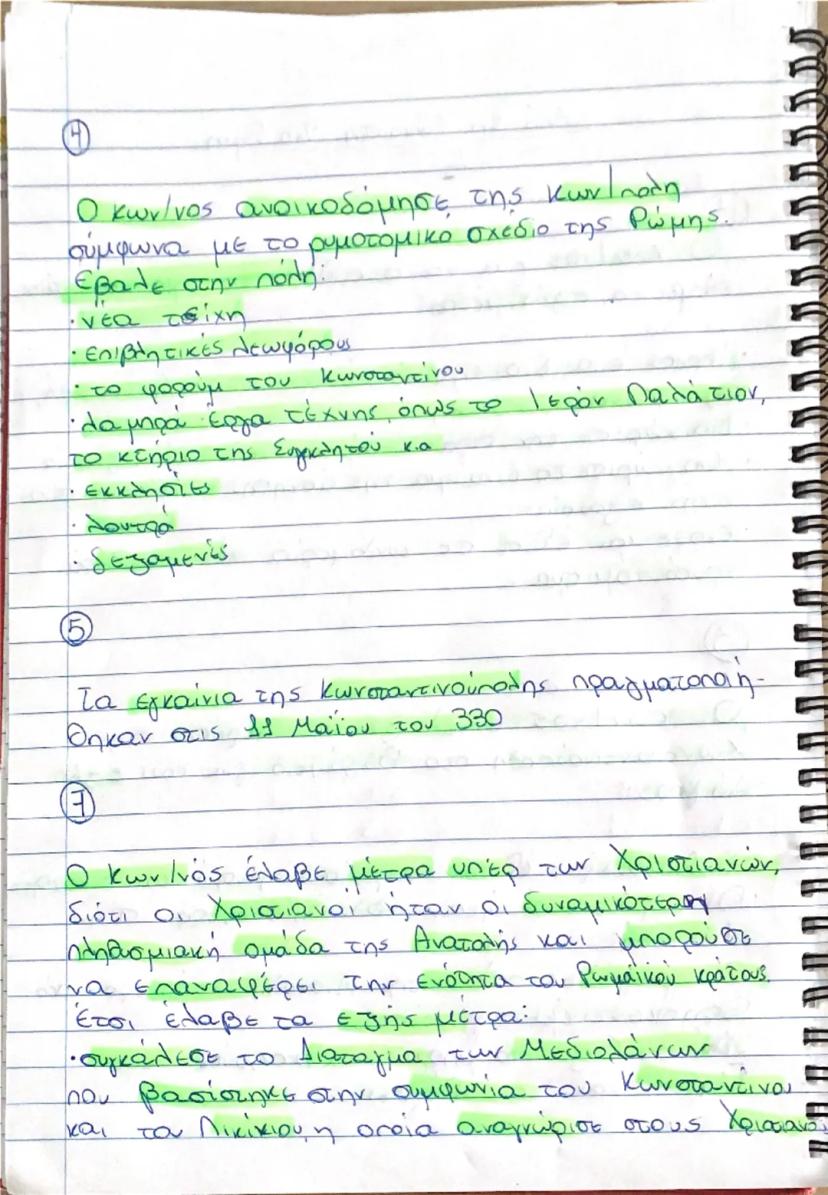 4
Ο Κων/νος ανοικοδόμησε της Κων/πολη
σύμφωνα με το ρυμοτομικό σχέδιο της Ρώμης.
Έβαλε στην πόλη:
· νέα τείχη
· επιβλητικές λεωφόρους
· το φορούμ του Κωνσταντίνου
· λαμπρά έργα τέχνης, όπως το Ιερόν Παλάτιον,
το κτήριο της Συγκλήτου κ.α
· εκκλησίες
· λουτρά
· δεξαμενές
5
Τα εγκαίνια της Κωνσταντινούπολης πραγματοποιή-
θηκαν στις 11 Μαΐου του 330
7
Ο Κων/νός έλαβε μέτρα υπέρ των Χριστιανών,
διότι οι Χριστιανοί ήταν οι δυναμικότερη
πληθυσμιακή ομάδα της Ανατολής και μπορούσε
να επαναφέρει την ενότητα του Ρωμαϊκού κράτους.
Έτσι έλαβε τα εξής μέτρα:
· συγκάλεσε το Διάταγμα των Μεδιολάνων
που βασίστηκε στην συμφωνία του Κωνσταντίνου
και του Λικίνιου, η οποία αναγνώρισε στους Χριστιανοί